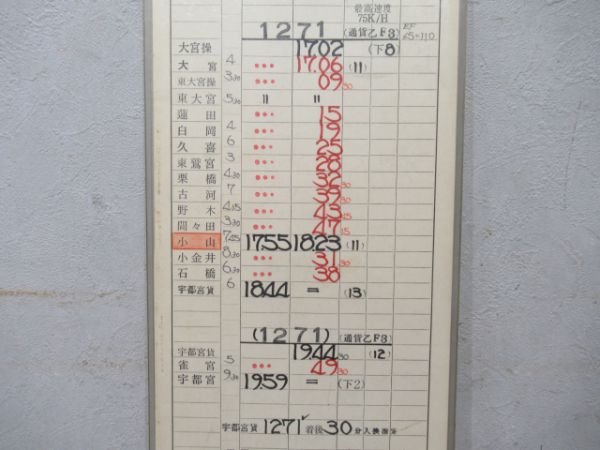 最高速度
75K/H
1271 (通貨乙F3) EF 65=110
大宮操 1702 (下8)
大宮 4 ••• 17.06 (11)
東大宮操 3.30 ••• 09 30
東大宮 5.30 〃 〃
蓮田 ••• 15
白岡 4 ••• 19
久喜 6 ••• 25
東鷲宮 3 ••• 28
栗橋 4.30 ••• 32 30
古河 7 ••• 39 30
野木 4.15 ••• 43 45
間々田 3.30 ••• 47 15
小山 7.45 1755 1823 (11)
小金井 8.30 ••• 31 30
石橋 6.30 ••• 38
宇都宮貨 6 1844 = (13)
(1271) (通貨乙F3)
宇都宮貨 19.44 30 (12)
雀宮 5 ••• 49 30
宇都宮 9.30 19.59 = (下2)
宇都宮貨 1271 着後 30 分入換